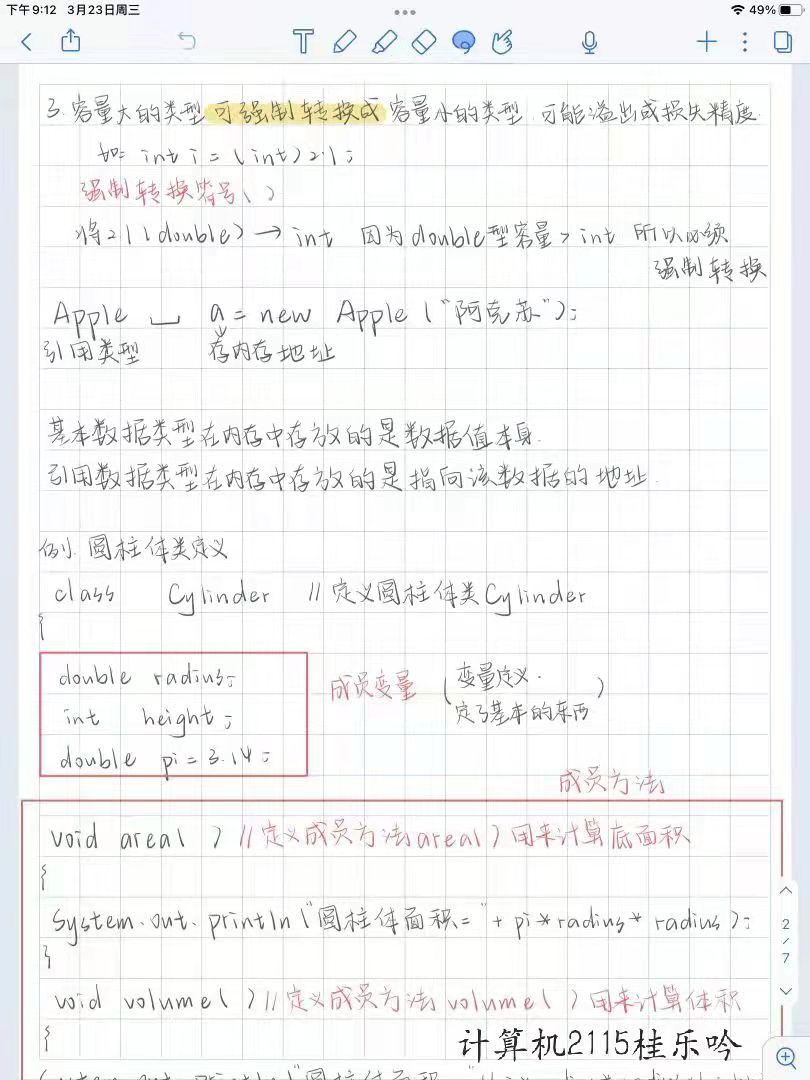 下午9:12 3月23日周三 49%
3. 容量大的类型可强制转换成容量小的类型 可能溢出或损失精度.
如 int i = (int) 2.1;
强制转换符号 ( )
将2.1 (double) → int 因为double型容量 > int 所以必须
强制转换
Apple ␣ a = new Apple ("阿克苏");
引用类型 存内存地址
基本数据类型在内存中存放的是数据值本身.
引用数据类型在内存中存放的是指向该数据的地址.
例. 圆柱体类定义
class Cylinder // 定义圆柱体类Cylinder
{
double radius;
成员变量 (变量定义.
int height;
定了基本的东西)
double pi = 3.14;
成员方法
void area( ) // 定义成员方法area( ) 用来计算底面积
{
System.out.println("圆柱体面积=" + pi*radius* radius );
}
2/7
void volume( ) // 定义成员方法 volume( ) 用来计算体积
{
计算机2115桂乐吟